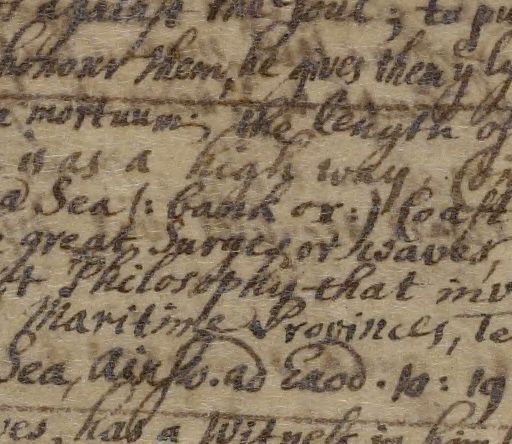 against the soul; to pu
honour them, he gives them yͤ
mortuum; the length of
it as a high way,
Sea (: bank or:) Coast
great Surges or waves,
Philosophy that inv
Maritime Provinces,
Sea, Ainsw. ad Exod. 10: 19
has a Witness in